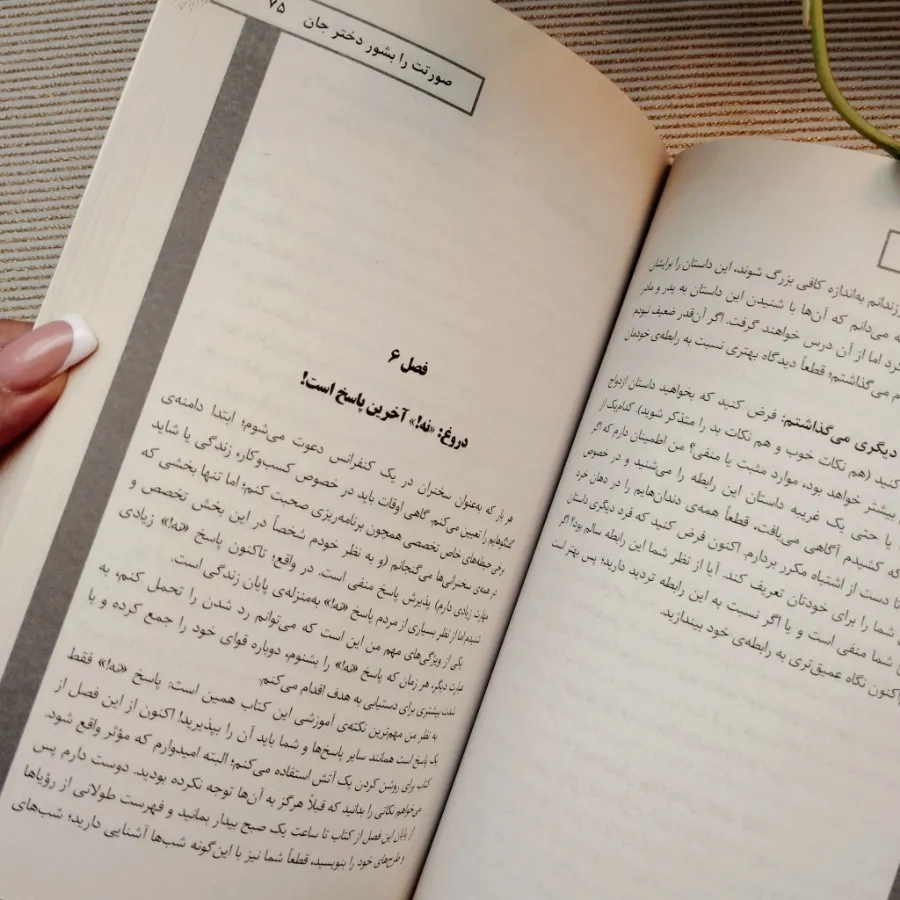 زندانم به‌اندازه کافی بزرگ شوند، این داستان را برایشان
می‌دانم که آن‌ها با شنیدن این داستان به پدر و مادر
کرد اما از آن درس خواهند گرفت. اگر آن‌قدر ضعیف نبودیم
می‌گذاشتم؛ قطعاً دیدگاه بهتری نسبت به رابطه‌ی خودمان
دیگری می‌گذاشتم: فرض کنید که بخواهید داستان ازدواج
کنید (هم نکات خوب و هم نکات بد را متذکر شوید) کدام‌یک از
بیشتر خواهد بود، موارد مثبت یا منفی؟ من اطمینان دارم که اگر
یا حتی یک غریبه داستان این رابطه را می‌شنید و در خصوص
که کشیدم آگاهی می‌یافت، قطعاً همه‌ی دندان‌هایم را در دهان خرد
تا دست از اشتباه مکرر بردارم. اکنون فرض کنید که فرد دیگری داستان
شما را برای خودتان تعریف کند. آیا از نظر شما این رابطه سالم بود؟ اگر
شما منفی است و یا اگر نسبت به این رابطه تردید دارید؛ پس بهتر است
اکنون نگاه عمیق‌تری به رابطه‌ی خود بیندازید.
صورتت را بشور دختر جان ۷۵
فصل ۶
دروغ: «نه!» آخرین پاسخ است!
هر بار که به‌عنوان سخنران در یک کنفرانس دعوت می‌شوم؛ ابتدا دامنه‌ی
گفتگوهایم را تعیین می‌کنم. گاهی اوقات باید در خصوص کسب‌وکار، زندگی یا شاید
برخی حیطه‌های خاص تخصصی همچون برنامه‌ریزی صحبت کنم؛ اما تنها بخشی که
در همه‌ی سخنرانی‌ها می‌گنجانم (و به نظر خودم شخصاً در این بخش تخصص و
مهارت زیادی دارم) پذیرش پاسخ منفی است. در واقع؛ تاکنون پاسخ «نه!» زیادی
شنیدم اما از نظر بسیاری از مردم پاسخ «نه!» به‌منزله‌ی پایان زندگی است.
یکی از ویژگی‌های مهم من این است که می‌توانم رد شدن را تحمل کنم، به
عبارت دیگر، هر زمان که پاسخ «نه!» را بشنوم، دوباره قوای خود را جمع کرده و با
شدت بیشتری برای دستیابی به هدف اقدام می‌کنم.
به نظر من مهم‌ترین نکته‌ی آموزشی این کتاب همین است: پاسخ «نه!» فقط
یک پاسخ است همانند سایر پاسخ‌ها و شما باید آن را بپذیرید! اکنون از این فصل از
کتاب برای روشن کردن یک آتش استفاده می‌کنم؛ البته امیدوارم که مؤثر واقع شود.
می‌خواهم نکاتی را بدانید که قبلاً هرگز به آن‌ها توجه نکرده بودید. دوست دارم پس
از پایان این فصل از کتاب تا ساعت یک صبح بیدار بمانید و فهرست طولانی از رؤیاها
و طرح‌های خود را بنویسید، قطعاً شما نیز با این‌گونه شب‌ها آشنایی دارید؛ شب‌های